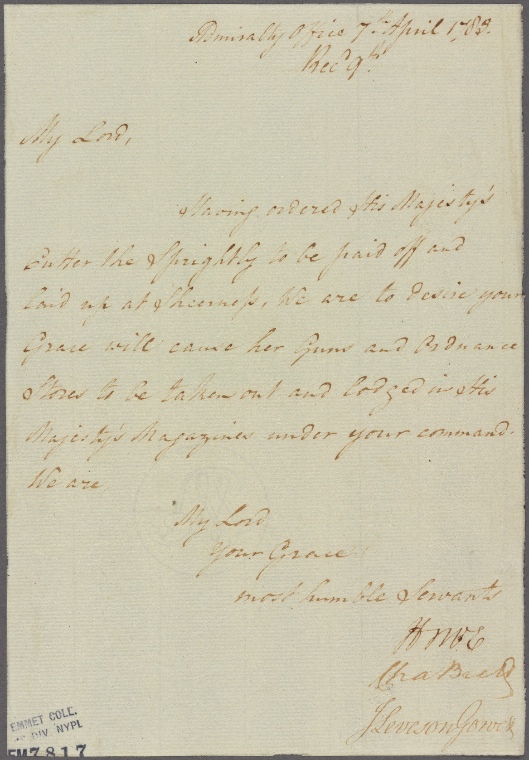 Admiralty Office 7th April 1783.
Recd 9th
My Lord,
Having ordered His Majesty's
Cutter the Sprightly to be paid off and
laid up at Sheerness, We are to desire your
Grace will cause her Guns and Ordnance
Stores to be taken out and lodged in His
Majesty's Magazines under your command.
We are,
My Lord
Your Grace's
most humble Servants
Howe
Cha
J Leveson Gower
EMMET COLL.
DIV. NYPL
EM7817